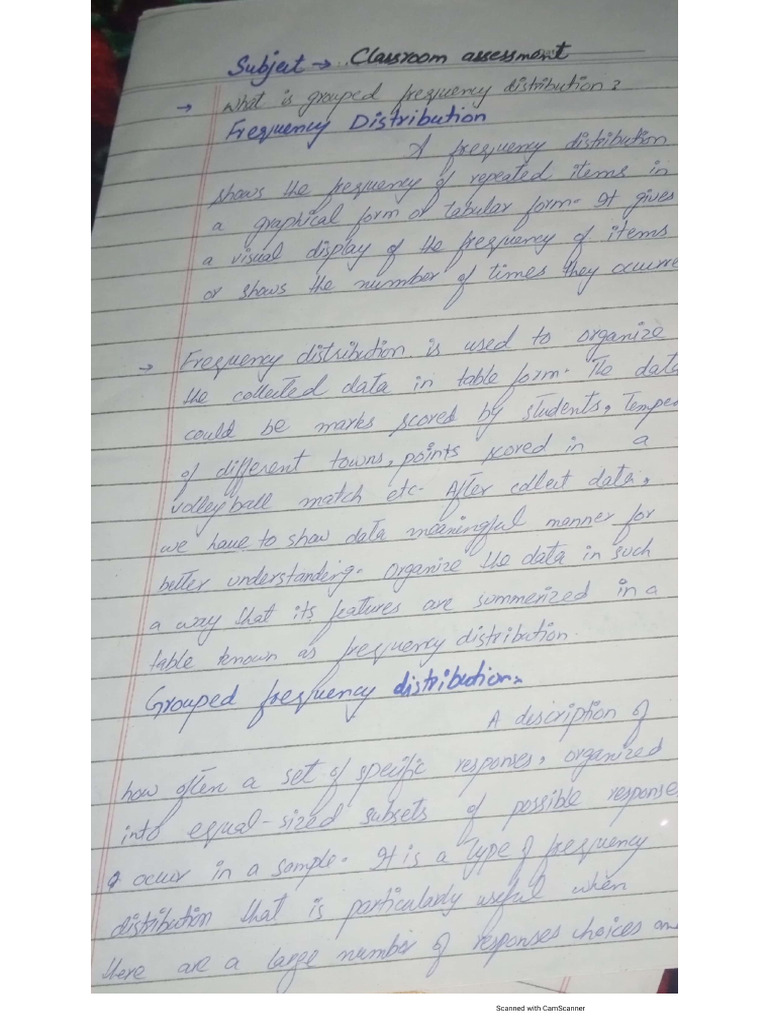 Subject → Classroom assessment
→ What is grouped frequency distribution?
Frequency Distribution
A frequency distribution
shows the frequency of repeated items in
a graphical form or tabular form. It gives
a visual display of the frequency of items
or shows the number of times they ocurre
→ Frequency distribution is used to organize
the collected data in table form. The data
could be marks scored by students, Tempe
of different towns, points scored in a
volleyball match etc. After collect data,
we have to show data meaningful manner for
better understanding. Organize the data in such
a way that its features are summerized in a
table known as frequency distribution.
Grouped frequency distribution.
A discription of
how often a set of specific responses, organized
into equal-sized subsets of possible response
occur in a sample. It is a type of frequency
distribution that is particularly useful when
there are a large number of responses choices an
Scanned with CamScanner